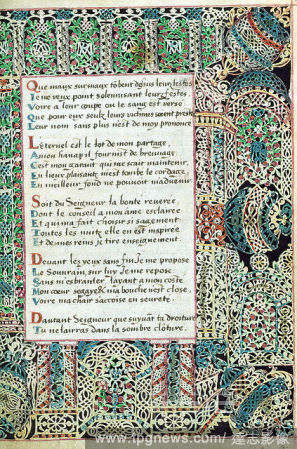 Que maux sur maux tõbent dessus leurs testes
Je ne veux point solennisant leurs festes
Voire a leur coupe ou le sang est verse
Que pour eux seulz leurs victimes soient prestes
Leur nom sans plus n'est de moy prononcé
L'eternel est le lot de mon partage
A mon hanap il fournist de breuvage
C'est mon garant qui me scait maintenir
En lieux plaisants m'est tombé le cordage
En meilleur fond ne pouvoit m'advenir
Soit du Seigneur la bonté reveree
Dont le conseil a mon ame esclairee
Et qui m'a fait choisir si sagement
Toutes les nuits elle en est inspiree
Et de mes reins je tire enseignement
Devant les yeux sans fin je me propose
Le Souvrain sur luy je me repose
Sans m'esbranler l'ayant a mon costé
Mon coeur s'egaye & ma bouche n'est close
Voire ma chair s'accoise en seureté
D'autant Seigneur que suyvãt ta droiture
Tu ne lairras dans la sombre closture
www.ipgnews.com / 達志影像